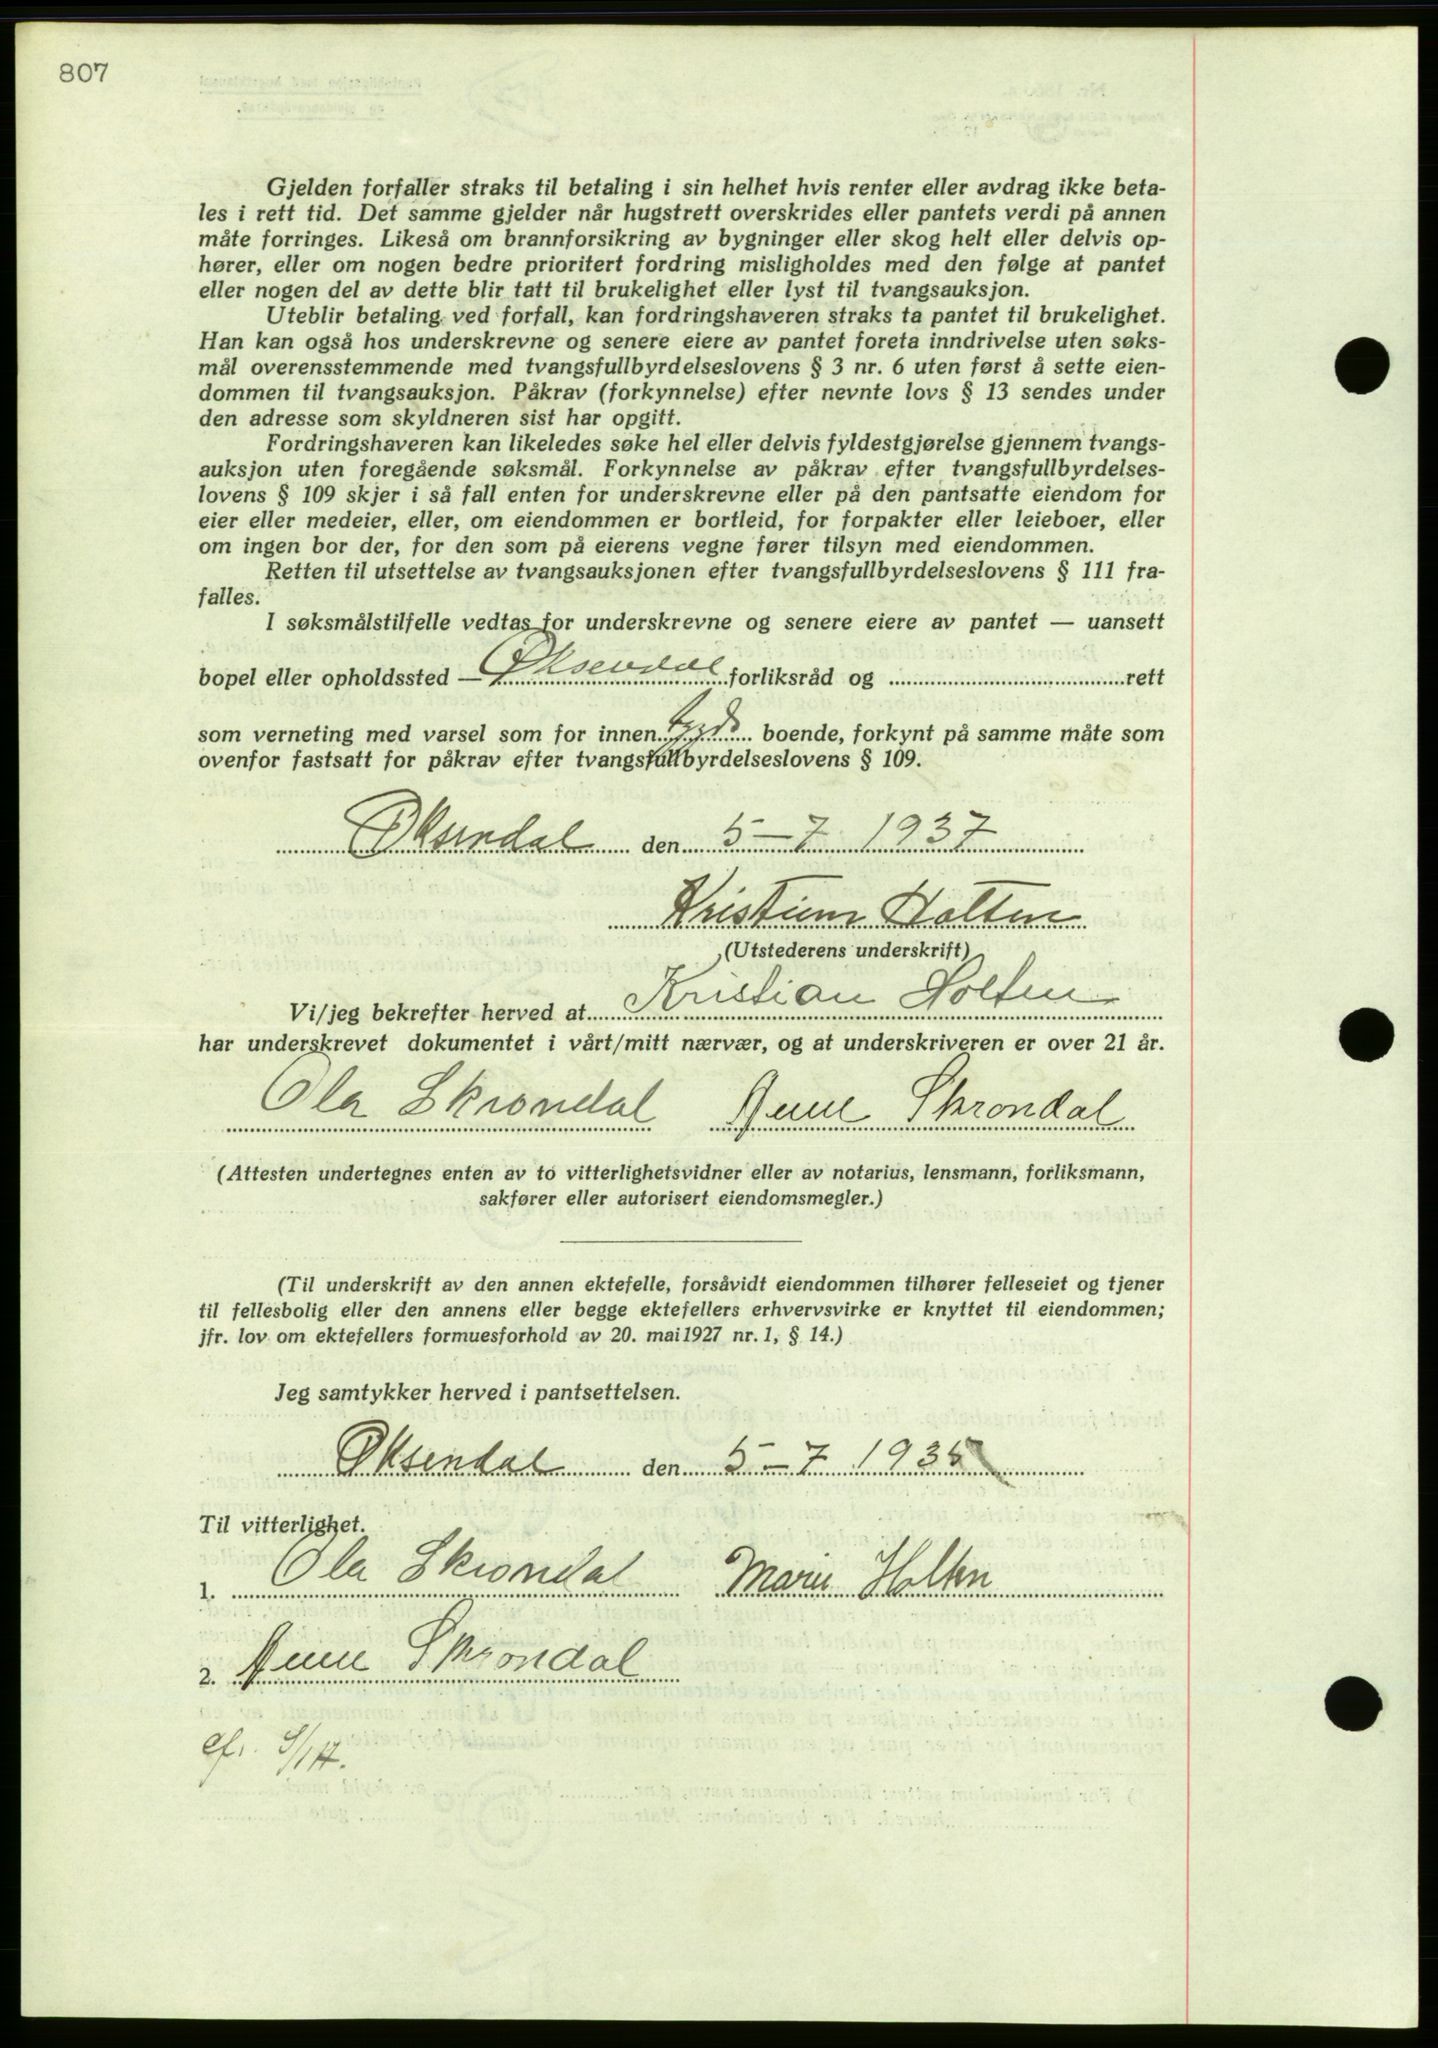 807
Gjelden forfaller straks til betaling i sin helhet hvis renter eller avdrag ikke beta-
les i rett tid. Det samme gjelder når hugstrett overskrides eller pantets verdi på annen
måte forringes. Likeså om brannforsikring av bygninger eller skog helt eller delvis op-
hører, eller om nogen bedre prioritert fordring misligholdes med den følge at pantet
eller nogen del av dette blir tatt til brukelighet eller lyst til tvangsauksjon.
Uteblir betaling ved forfall, kan fordringshaveren straks ta pantet til brukelighet.
Han kan også hos underskrevne og senere eiere av pantet foreta inndrivelse uten søks-
mål overensstemmende med tvangsfullbyrdelseslovens § 3 nr. 6 uten først å sette eien-
dommen til tvangsauksjon. Påkrav (forkynnelse) efter nevnte lovs § 13 sendes under
den adresse som skyldneren sist har opgitt.
Fordringshaveren kan likeledes søke hel eller delvis fyldestgjørelse gjennem tvangs-
auksjon uten foregående søksmål. Forkynnelse av påkrav efter tvangsfullbyrdelses-
lovens § 109 skjer i så fall enten for underskrevne eller på den pantsatte eiendom for
eier eller medeier, eller, om eiendommen er bortleid, for forpakter eller leieboer, eller
om ingen bor der, for den som på eierens vegne fører tilsyn med eiendommen.
Retten til utsettelse av tvangsauksjonen efter tvangsfullbyrdelseslovens § 111 fra-
falles.
I søksmålstilfelle vedtas for underskrevne og senere eiere av pantet — uansett
bopel eller opholdssted — Øksendal forliksråd og rett
som verneting med varsel som for innen bygds boende, forkynt på samme måte som
ovenfor fastsatt for påkrav efter tvangsfullbyrdelseslovens § 109.
Øksendal den 5-7 1937
Kristian Holten
(Utstederens underskrift)
Vi/jeg bekrefter herved at Kristian Holten
har underskrevet dokumentet i vårt/mitt nærvær, og at underskriveren er over 21 år.
Ola Skrondal Anne Skrondal
(Attesten undertegnes enten av to vitterlighetsvidner eller av notarius, lensmann, forliksmann,
sakfører eller autorisert eiendomsmegler.)
(Til underskrift av den annen ektefelle, forsåvidt eiendommen tilhører felleseiet og tjener
til fellesbolig eller den annens eller begge ektefellers erhvervsvirke er knyttet til eiendommen;
jfr. lov om ektefellers formuesforhold av 20. mai 1927 nr. 1, § 14.)
Jeg samtykker herved i pantsettelsen.
Øksendal den 5-7 1935
Til vitterlighet.
1. Ola Skrondal Marie Holten
2. Anne Skrondal